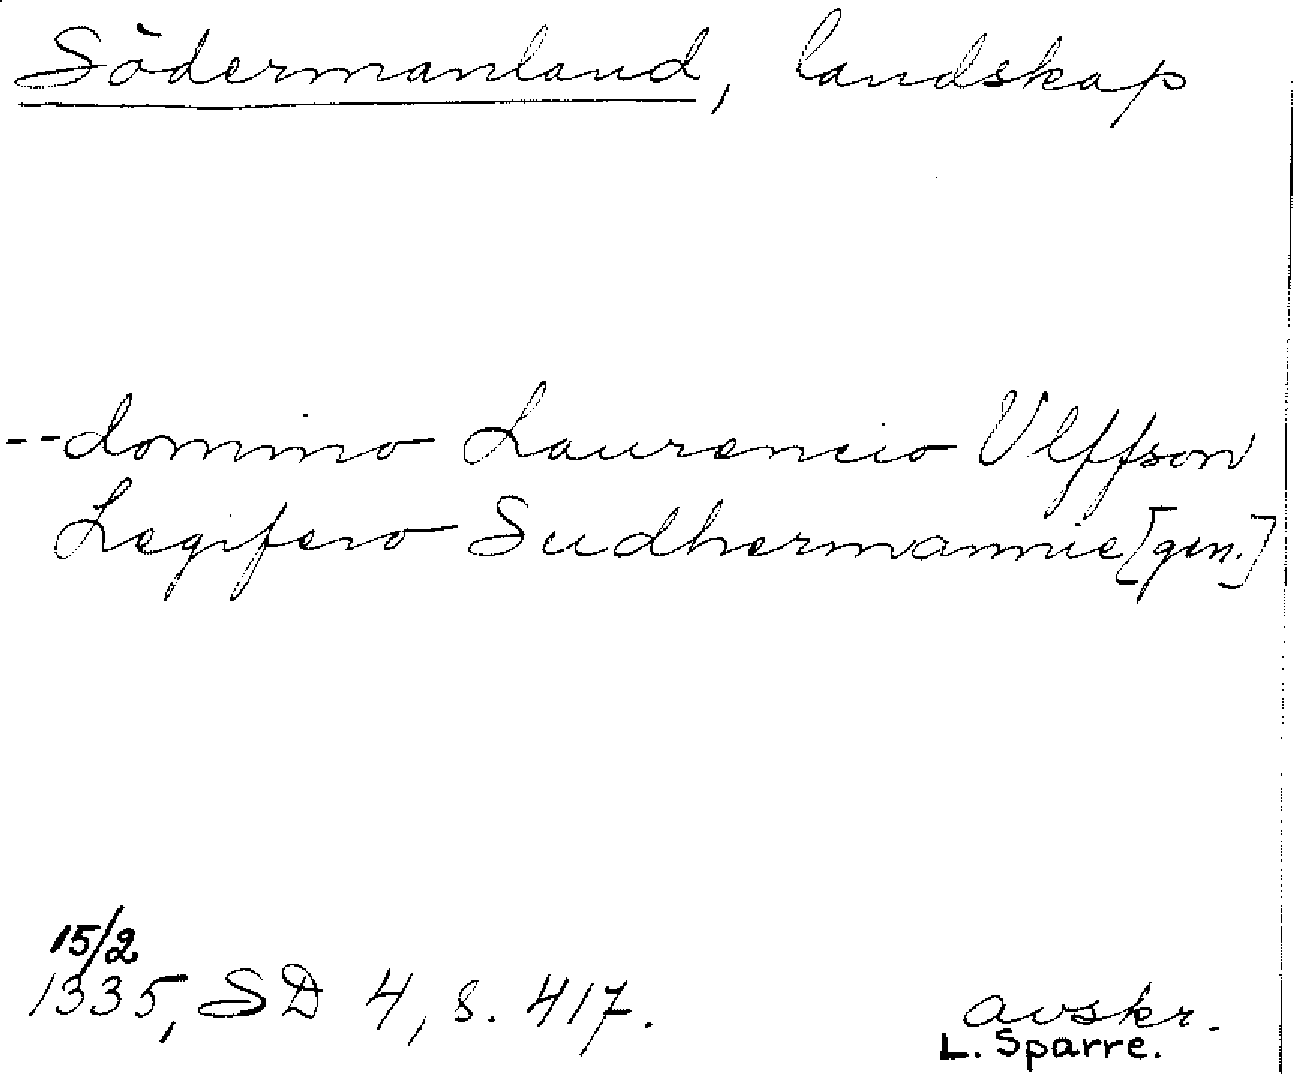 Södermanland, landskap
-- domino Laurencio Ulffson
Legifero Sudhermannie [gen.]
15/2
1335, SD 4, s. 417.
avskr.
L. Sparre.